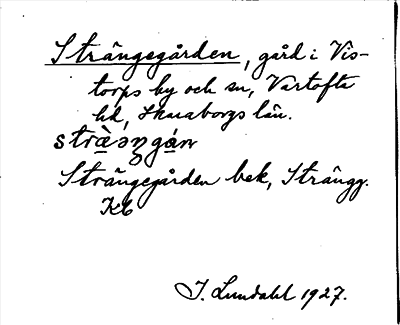 Strängegården, gård i Vis-
torps by och sn, Vartofta
hd, Skaraborgs län.
Strängegården bek, Strängg.
KB
J. Lundahl 1927.